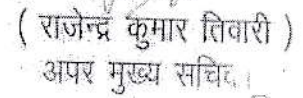 ( राजेन्द्र कुमार तिवारी )
अपर मुख्य सचिव।